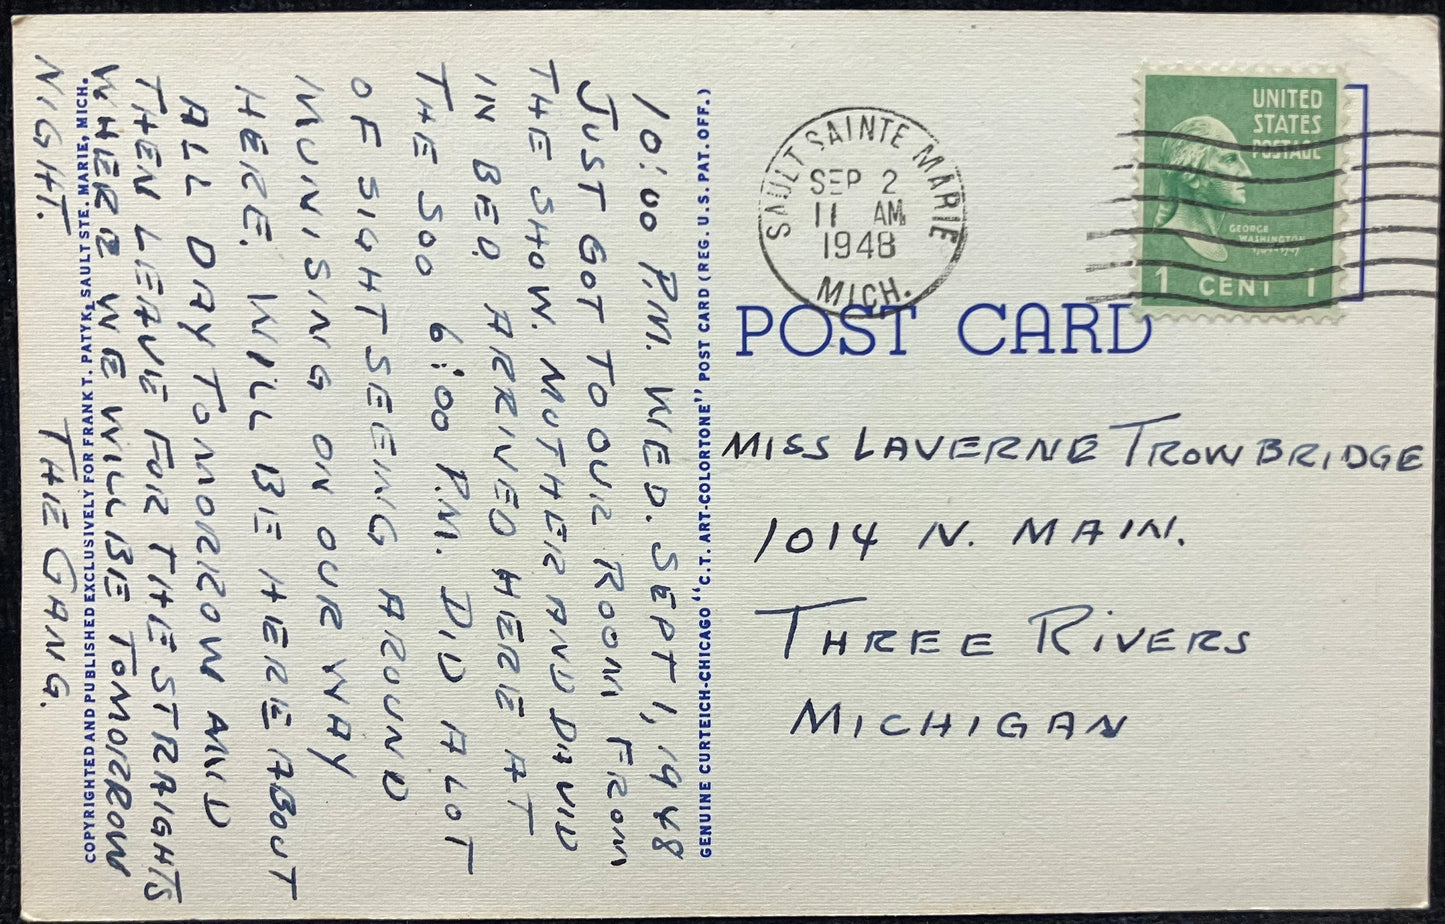 10:00 P.M. WED. SEPT 1, 1948
JUST GOT TO OUR ROOM FROM
THE SHOW. MOTHER AND DAVID
IN BED. ARRIVED HERE AT
THE SOO 6:00 P.M. DID ALOT
OF SIGHTSEEING AROUND
MUNISING ON OUR WAY
HERE. WILL BE HERE ABOUT
ALL DAY TOMORROW AND
THEN LEAVE FOR THE STRAIGHTS
WHERE WE WILL BE TOMORROW
NIGHT.
THE GANG.
COPYRIGHTED AND PUBLISHED EXCLUSIVELY FOR FRANK T. PATYK, SAULT STE. MARIE, MICH.
GENUINE CURTEICH-CHICAGO "C.T. ART-COLORTONE" POST CARD (REG. U.S. PAT. OFF.)
SAULT SAINTE MARIE
SEP 2
11 AM
1948
MICH.
UNITED
STATES
POSTAGE
GEORGE
WASHINGTON
1 CENT 1
POST CARD
MISS LAVERNE TROWBRIDGE
1014 N. MAIN.
THREE RIVERS
MICHIGAN